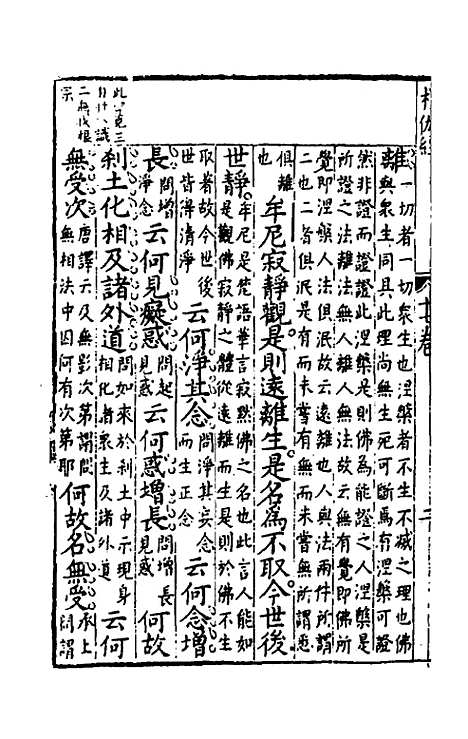 離一切者一切眾生也涅槃者不生不滅之理也佛
與眾生同具此理尚無生死可斷焉有涅槃可證
然非證而證證此涅槃是則佛為能證之人涅槃是
所證之法離法無人離人無法故云無有覺即佛所
覺即涅槃人法俱泯故云遠離也人與法兩件所謂
二也二者俱泯是有而未嘗有無而未嘗無所謂悉
俱離也 牟尼寂靜觀是則遠離生是名為不取今世後
世靜牟尼是梵語華言寂默佛之名也此言人能如
是觀佛寂靜之體從遠離而生是則於佛不生
取著故今世後世皆得清淨 云何淨其念問淨其妄念而生正念 云何念增
長問增淨念 云何見癡惑問起見惑 云何惑增長問增長見惑 何故
剎土化相及諸外道問如來於剎土中示現身相化者眾生及諸外道 云何
無受次唐譯云及無影次第謂問無相法中因何有次第耶 何故名無受承上問謂
卷
此
三
識
二
根
宗